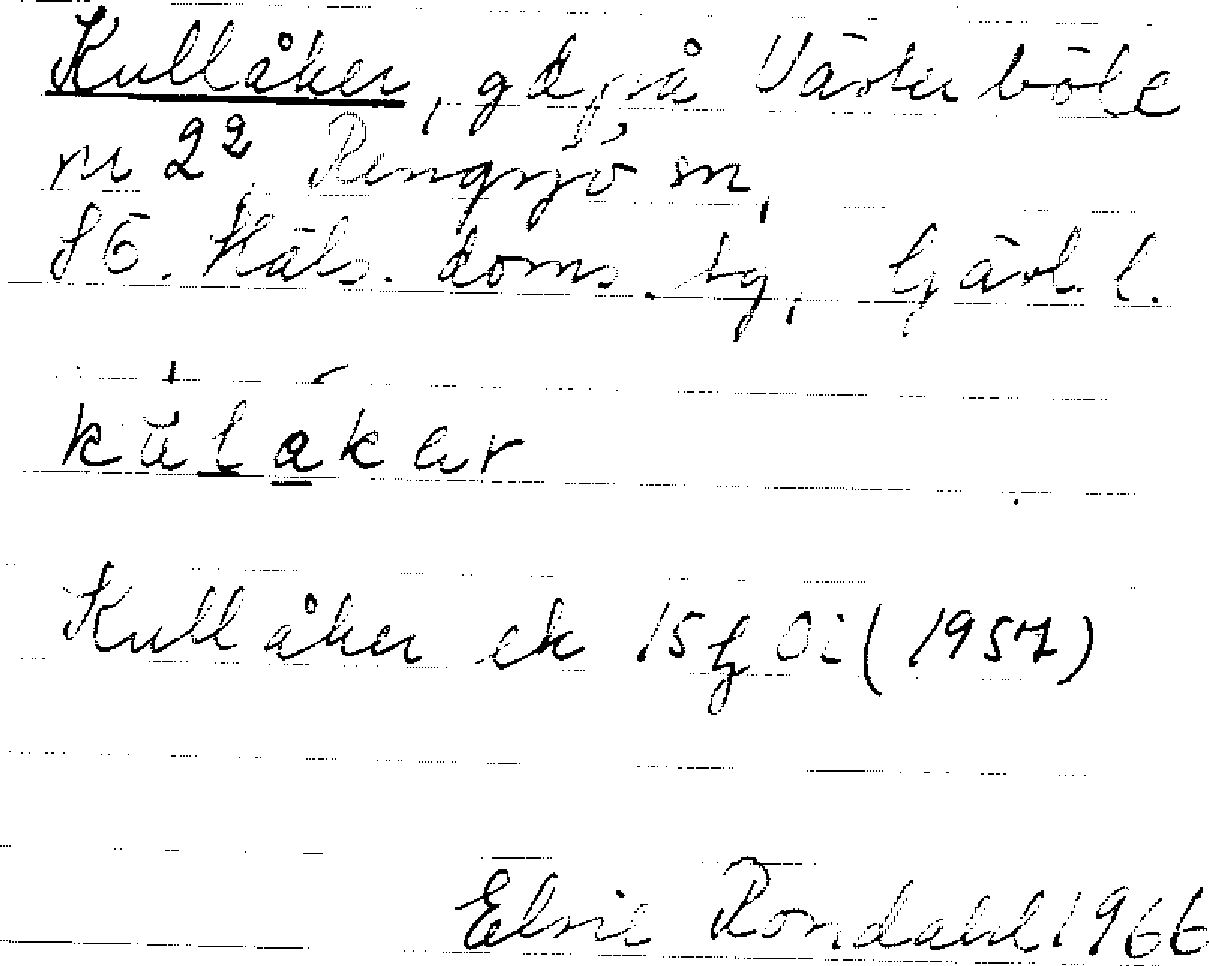 Kullåker, gd, på Västerböle
nr 2², Rengsjö sn,
SÖ. Häls. doms. tg, Gävl. l.
kulåkar
Kullåker ek 15g 0i (1957)
Elsie Rondahl 1966